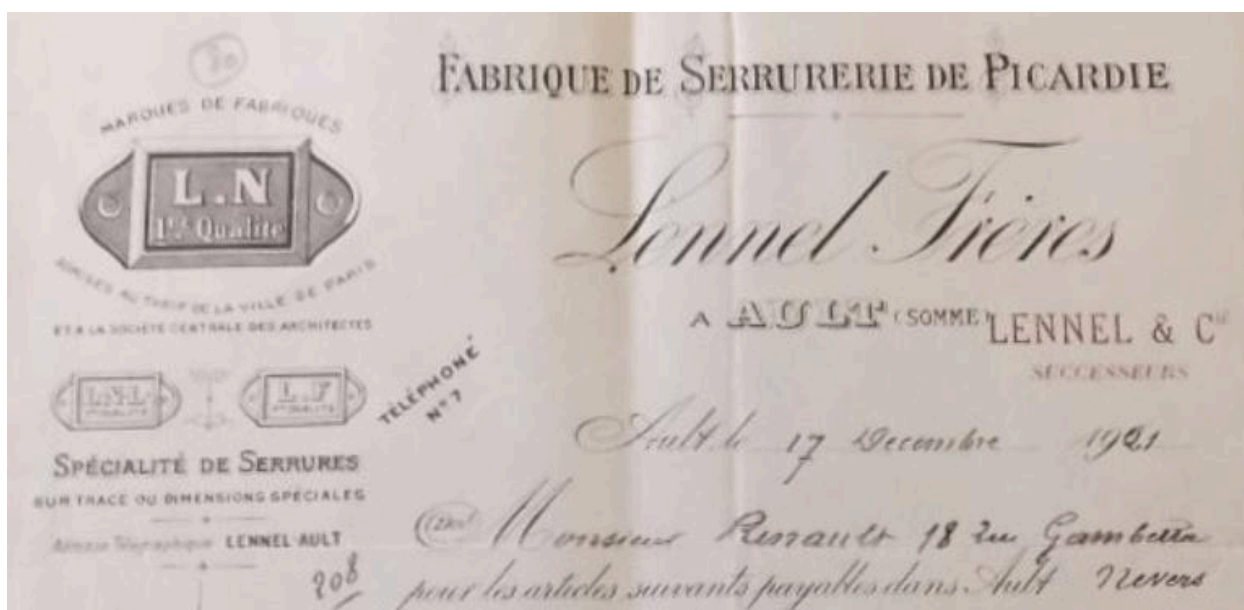 30
MARQUES DE FABRIQUES
L.N
1re Qualité
ADMISES AU TARIF DE LA VILLE DE PARIS
ET A LA SOCIÉTÉ CENTRALE DES ARCHITECTES
L.N.L
1re QUALITÉ
L.F
1re QUALITÉ
SPÉCIALITÉ DE SERRURES
SUR TRACÉ OU DIMENSIONS SPÉCIALES
Adresse Télégraphique LENNEL-AULT
208
TÉLÉPHONE
No 7
FABRIQUE DE SERRURERIE DE PICARDIE
Lennel Frères
A AULT (SOMME)
LENNEL & Cie
SUCCESSEURS
Ault, le 17 Decembre 1921
Monsieur Renault 18 rue Gambetta
pour les articles suivants payables dans Ault Nevers